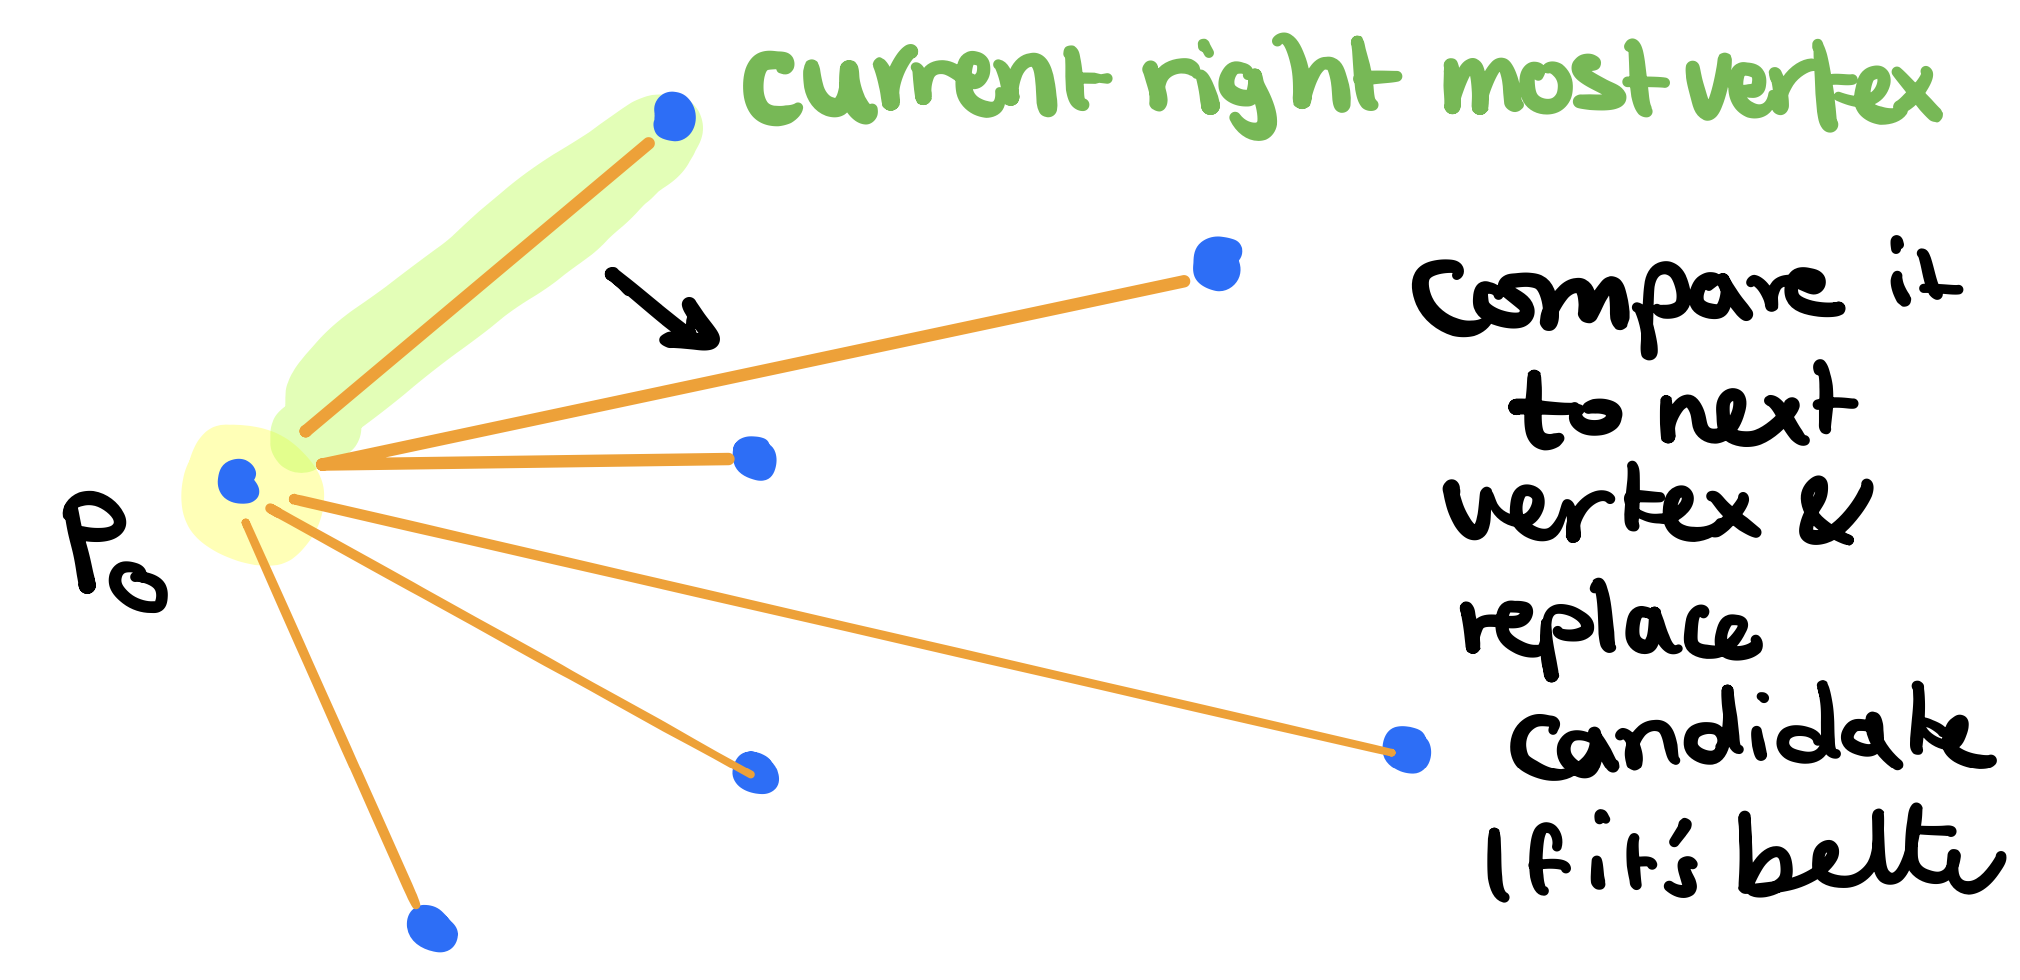 current right most vertex
compare it
to next
vertex &
replace
candidate
If it's better
P0